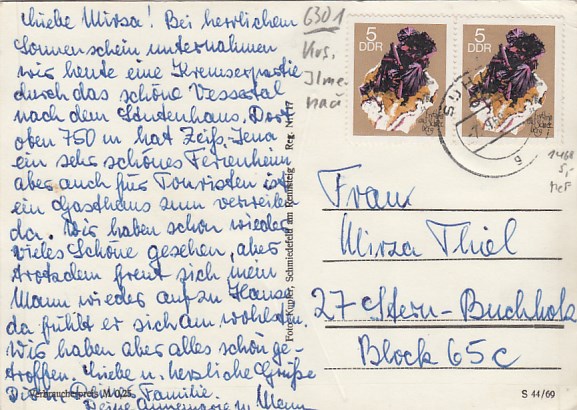 Liebe Mirza! Bei herrlichem
Sonnenschein unternahmen
wir heute eine Kremserpartie
durch das schöne Vessertal
nach dem Stutenhaus. Dort
oben 750 m hat Zeiß-Jena
ein sehr schönes Ferienheim
aber auch für Touristen ist
ein Gasthaus zum verweilen
da. Wir haben schon wieder
vieles Schöne gesehen, aber
trotzdem freut sich mein
Mann wieder auf zu Hause
da fühlt er sich am wohlsten.
Wir haben aber alles schön ge-
troffen. Liebe u. herzliche Grüße
Dir u. Deiner Familie.
Deine Annemarie u. Mann
Verbraucherpreis M 0,25
Foto-Kupfer, Schmiedefeld am Rennsteig Reg.
6301
Krs.
Ilme
nau
5
DDR
5
DDR
SUHL
9
Frau
Mirza Thiel
27 Stern-Buchholz
Block 65c
S 44/69